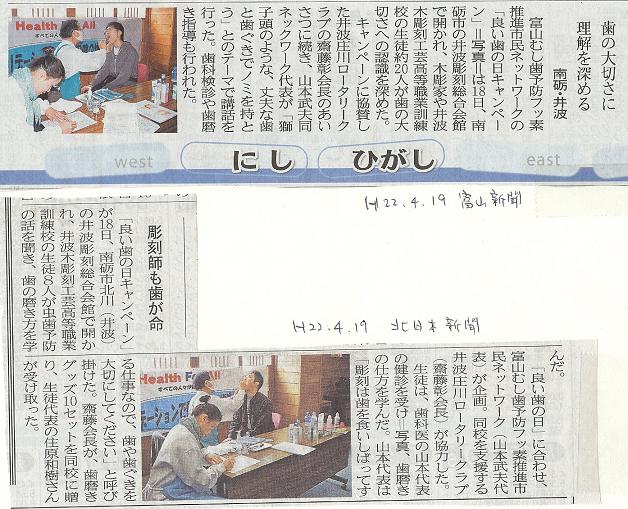 歯の大切さに
理解を深める
南砺・井波
富山むし歯予防フッ素
推進市民ネットワークの
「良い歯の日キャンペー
ン」＝写真＝は18日、南
砺市の井波彫刻総合会館
で開かれ、木彫家や井波
木彫刻工芸高等職業訓練
校の生徒約20人が歯の大
切さへの認識を深めた。
キャンペーンに協賛し
た井波庄川ロータリーク
ラブの齋藤彰会長のあい
さつに続き、山本武夫同
ネックワーク代表が「獅
子頭のような、丈夫な歯
と歯ぐきでノミを持と
う」とのテーマで講話を
行った。歯科検診や歯磨
き指導も行われた。
Health For All
すべての人々が
west
にし
ひがし
east
H22.4.19 富山新聞
彫刻師も歯が命
「良い歯の日キャンペーン」
が18日、南砺市北川（井波）
の井波彫刻総合会館で開か
れ、井波木彫刻工芸高等職業
訓練校の生徒８人が虫歯予防
の話を聞き、歯の磨き方を学
H22.4.19 北日本新聞
んだ。
「良い歯の日」に合わせ、
富山むし歯予防フッ素推進市
民ネットワーク（山本武夫代
表）が企画。同校を支援する
井波庄川ロータリークラブ
（齋藤彰会長）が協力した。
生徒は、歯科医の山本代表
の健診を受け＝写真、歯磨き
の仕方を学んだ。山本代表は
「彫刻は歯を食いしばってす
Health For All
すべての人々に健康を
る仕事なので、歯や歯ぐきを
大切にしてください」と呼び
掛けた。齋藤会長が、歯磨き
グッズ10セットを同校に贈
り、生徒代表の住原和樹さん
が受け取った。